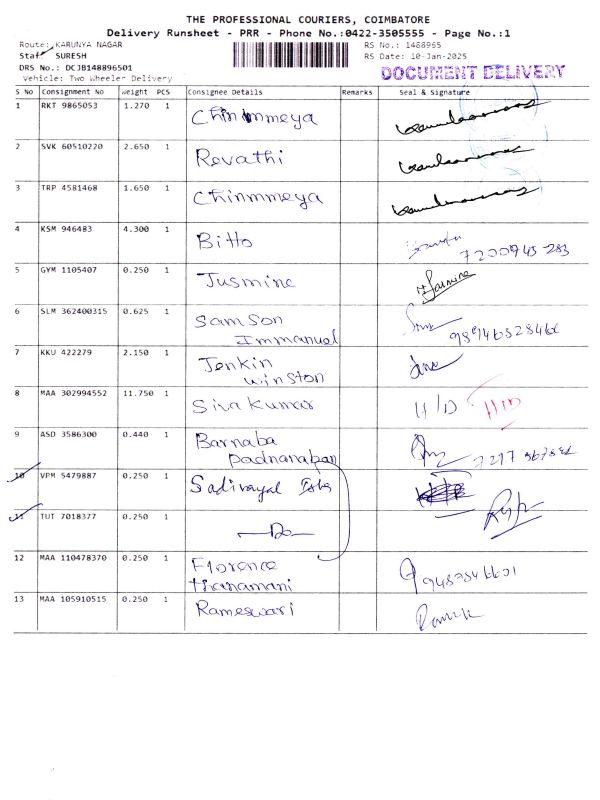 THE PROFESSIONAL COURIERS, COIMBATORE
Delivery Runsheet - PRR - Phone No.:0422-3505555 - Page No.:1
Route: KARUNYA NAGAR RS No.: 1488965
Staff SURESH RS Date: 10-Jan-2025
DRS No.: DCJB148896501 DOCUMENT DELIVERY
Vehicle: Two Wheeler Delivery
S No Consignment No Weight PCS Consignee Details Remarks Seal & Signature
1 RKT 9865053 1.270 1 Chinmmeya
2 SVK 60510220 2.650 1 Revathi
3 TRP 4581468 1.650 1 Chinmmeya
4 KSM 946483 4.300 1 Bitto
7200945 283
5 GYM 1105407 0.250 1 Jusmine Jasmine
6 SLM 362400315 0.625 1 Samson
Immanuel
7 KKU 422279 2.150 1 Jenkin
winston
8 MAA 302994552 11.750 1 Siva Kumar H/D H/D
9 ASD 3586300 0.440 1 Barnaba
Padnanaban
10 VPM 5479887 0.250 1 Sadivayal
11 TUT 7018377 0.250 1 Do
12 MAA 110478370 0.250 1 Florence
Thanamani
13 MAA 105910515 0.250 1 Rameswari